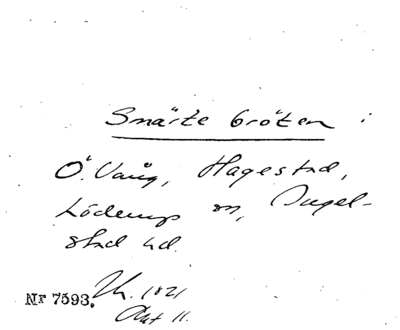 Smärte bröten i
Ö. Vång, Hagestad,
Löderups sn, Ingel-
stad hd.
Nr 7593. Lk. 1821
Akt 11.